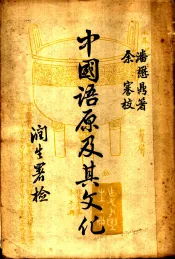 潘懋鼎著
余賽校
中國語原及其文化
潤生署檢